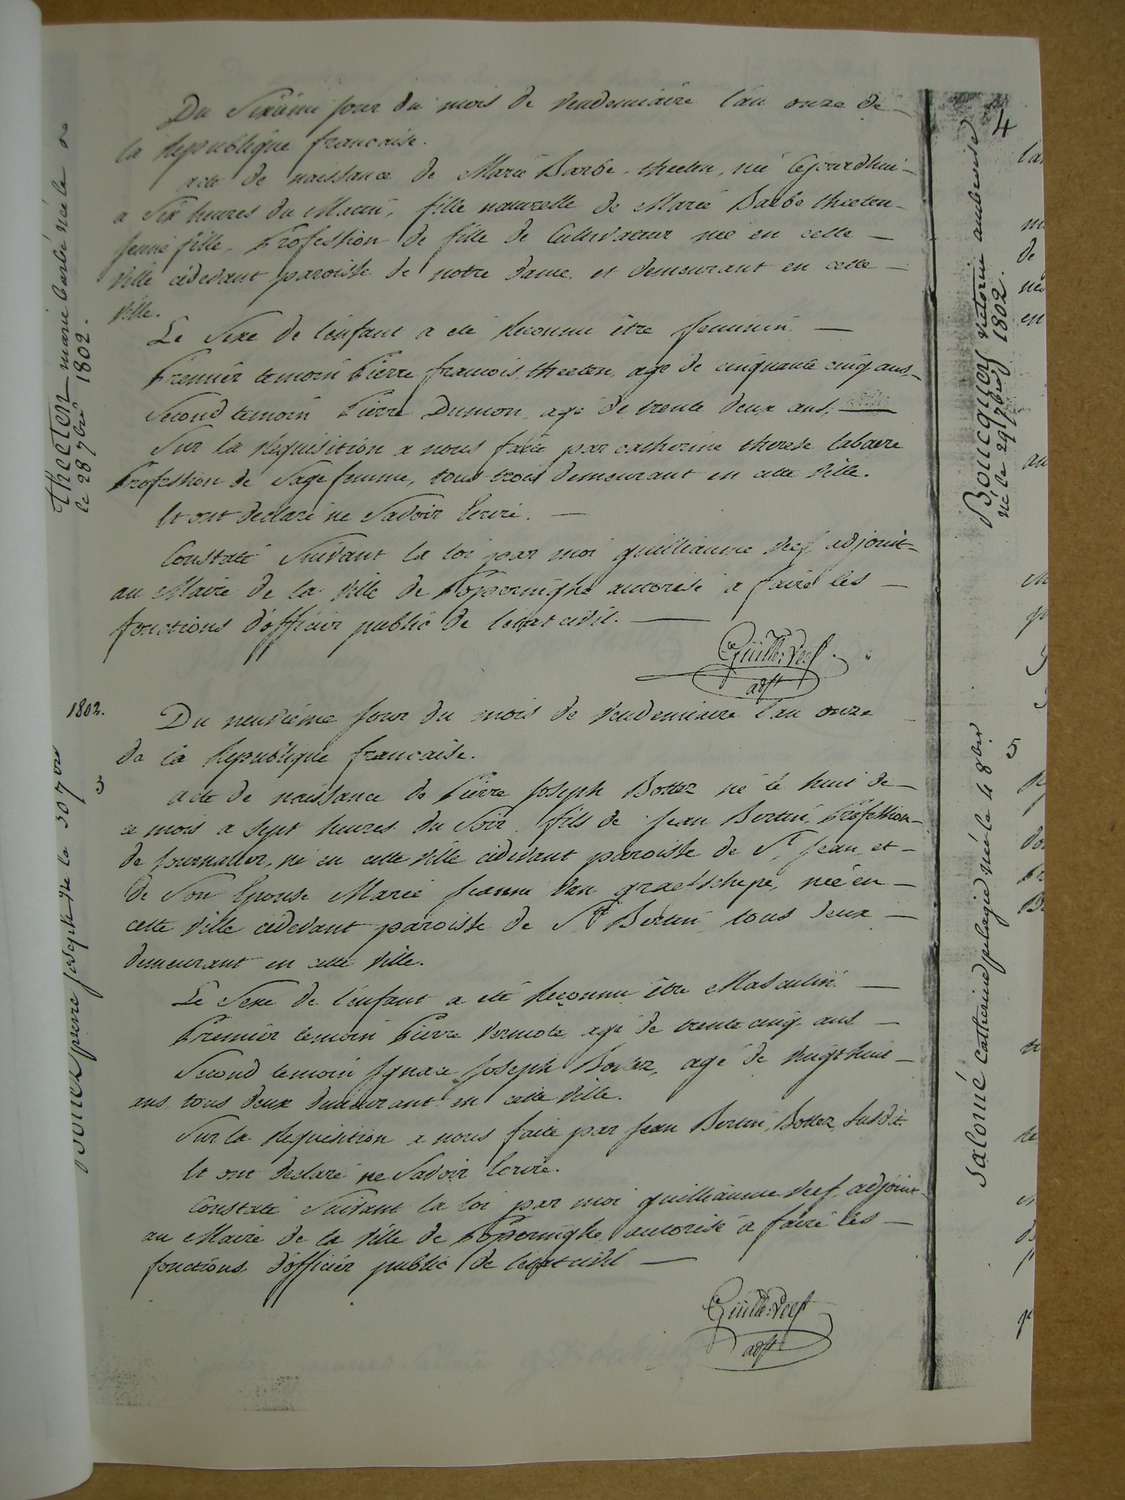 4
theeten marie barbe née le
le 28 7bre 1802.
Du Sixieme jour du mois de vendemiaire l'an onze de
la Republique francaise.
acte de naissance de Marie Barbe theeten, née cejourdhui
a Six heures du Matin, fille naturelle de Marie Barbe theeten
jeune fille, Profession de fille de Cultivateur née en cette
ville cidevant paroisse de notre dame et demeurant en cette
ville.
Le Sexe de l'enfant a eté Reconnu être feminin
Premier temoin Pierre francois theeten agé de cinquante cinq ans
Second temoin Pierre Dumon agé de trente deux ans.
Sur la Requisition a nous faite par catherine therese labaere
Profession de Sage femme, tous trois demeurant en cette ville.
Et ont declaré ne Savoir Ecrire.
Constaté Suivant la loi par moi guilliaume Reef adjoint
au Maire de la ville de Poperinghe autorisé a faire les
fonctions d'officier public de l'etat civil.
Guille: Reef
adjt
1802.
5
Bottez pierre joseph né le 30 7bre
Du neuvieme jour du mois de vendemiaire l'an onze
de la Republique francaise.
acte de naissance de Pierre Joseph Bottez né le huit de
ce mois a Sept heures du Soir, fils de Jean Bertin, Profession
de journalier, né en cette ville cidevant paroisse de St Jean et
de Son Epouse Marie Jeanne Van graefschepe, née en
cette ville cidevant paroisse de St Bertin tous deux
demeurant en cette ville.
Le Sexe de l'enfant a eté Reconnu être Masculin.
Premier temoin Pierre Vermote agé de trente cinq ans
Second temoin Ignace Joseph Bottez, agé de vingt huit
ans tous deux demeurant en cette ville.
Sur la Requisition a nous faite par Jean Bertin Bottez Susdit
Et ont declaré ne Savoir Ecrire.
Constaté Suivant la loi par moi guilliaume Reef adjoint
au Maire de la ville de Poperinghe autorisé a faire les
fonctions d'officier public de l'etat civil
Guille: Reef
adjt
Boucquey victorin
né le 29 7bre 1802.
5
Salomé Catherine pelagie née le 8bre